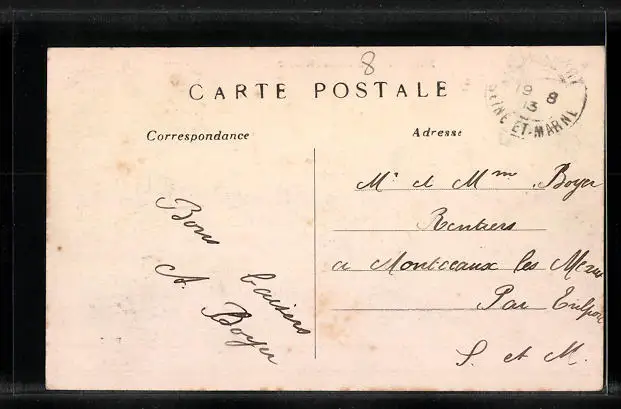 8
CARTE POSTALE
19 8
13
SEINE-ET-MARNE
Correspondance
Adresse
Bons baisers
A. Boyer
Mr et Mme Boyer
Rentiers
a Montceaux les Meaux
Par Trilport
S. et M.